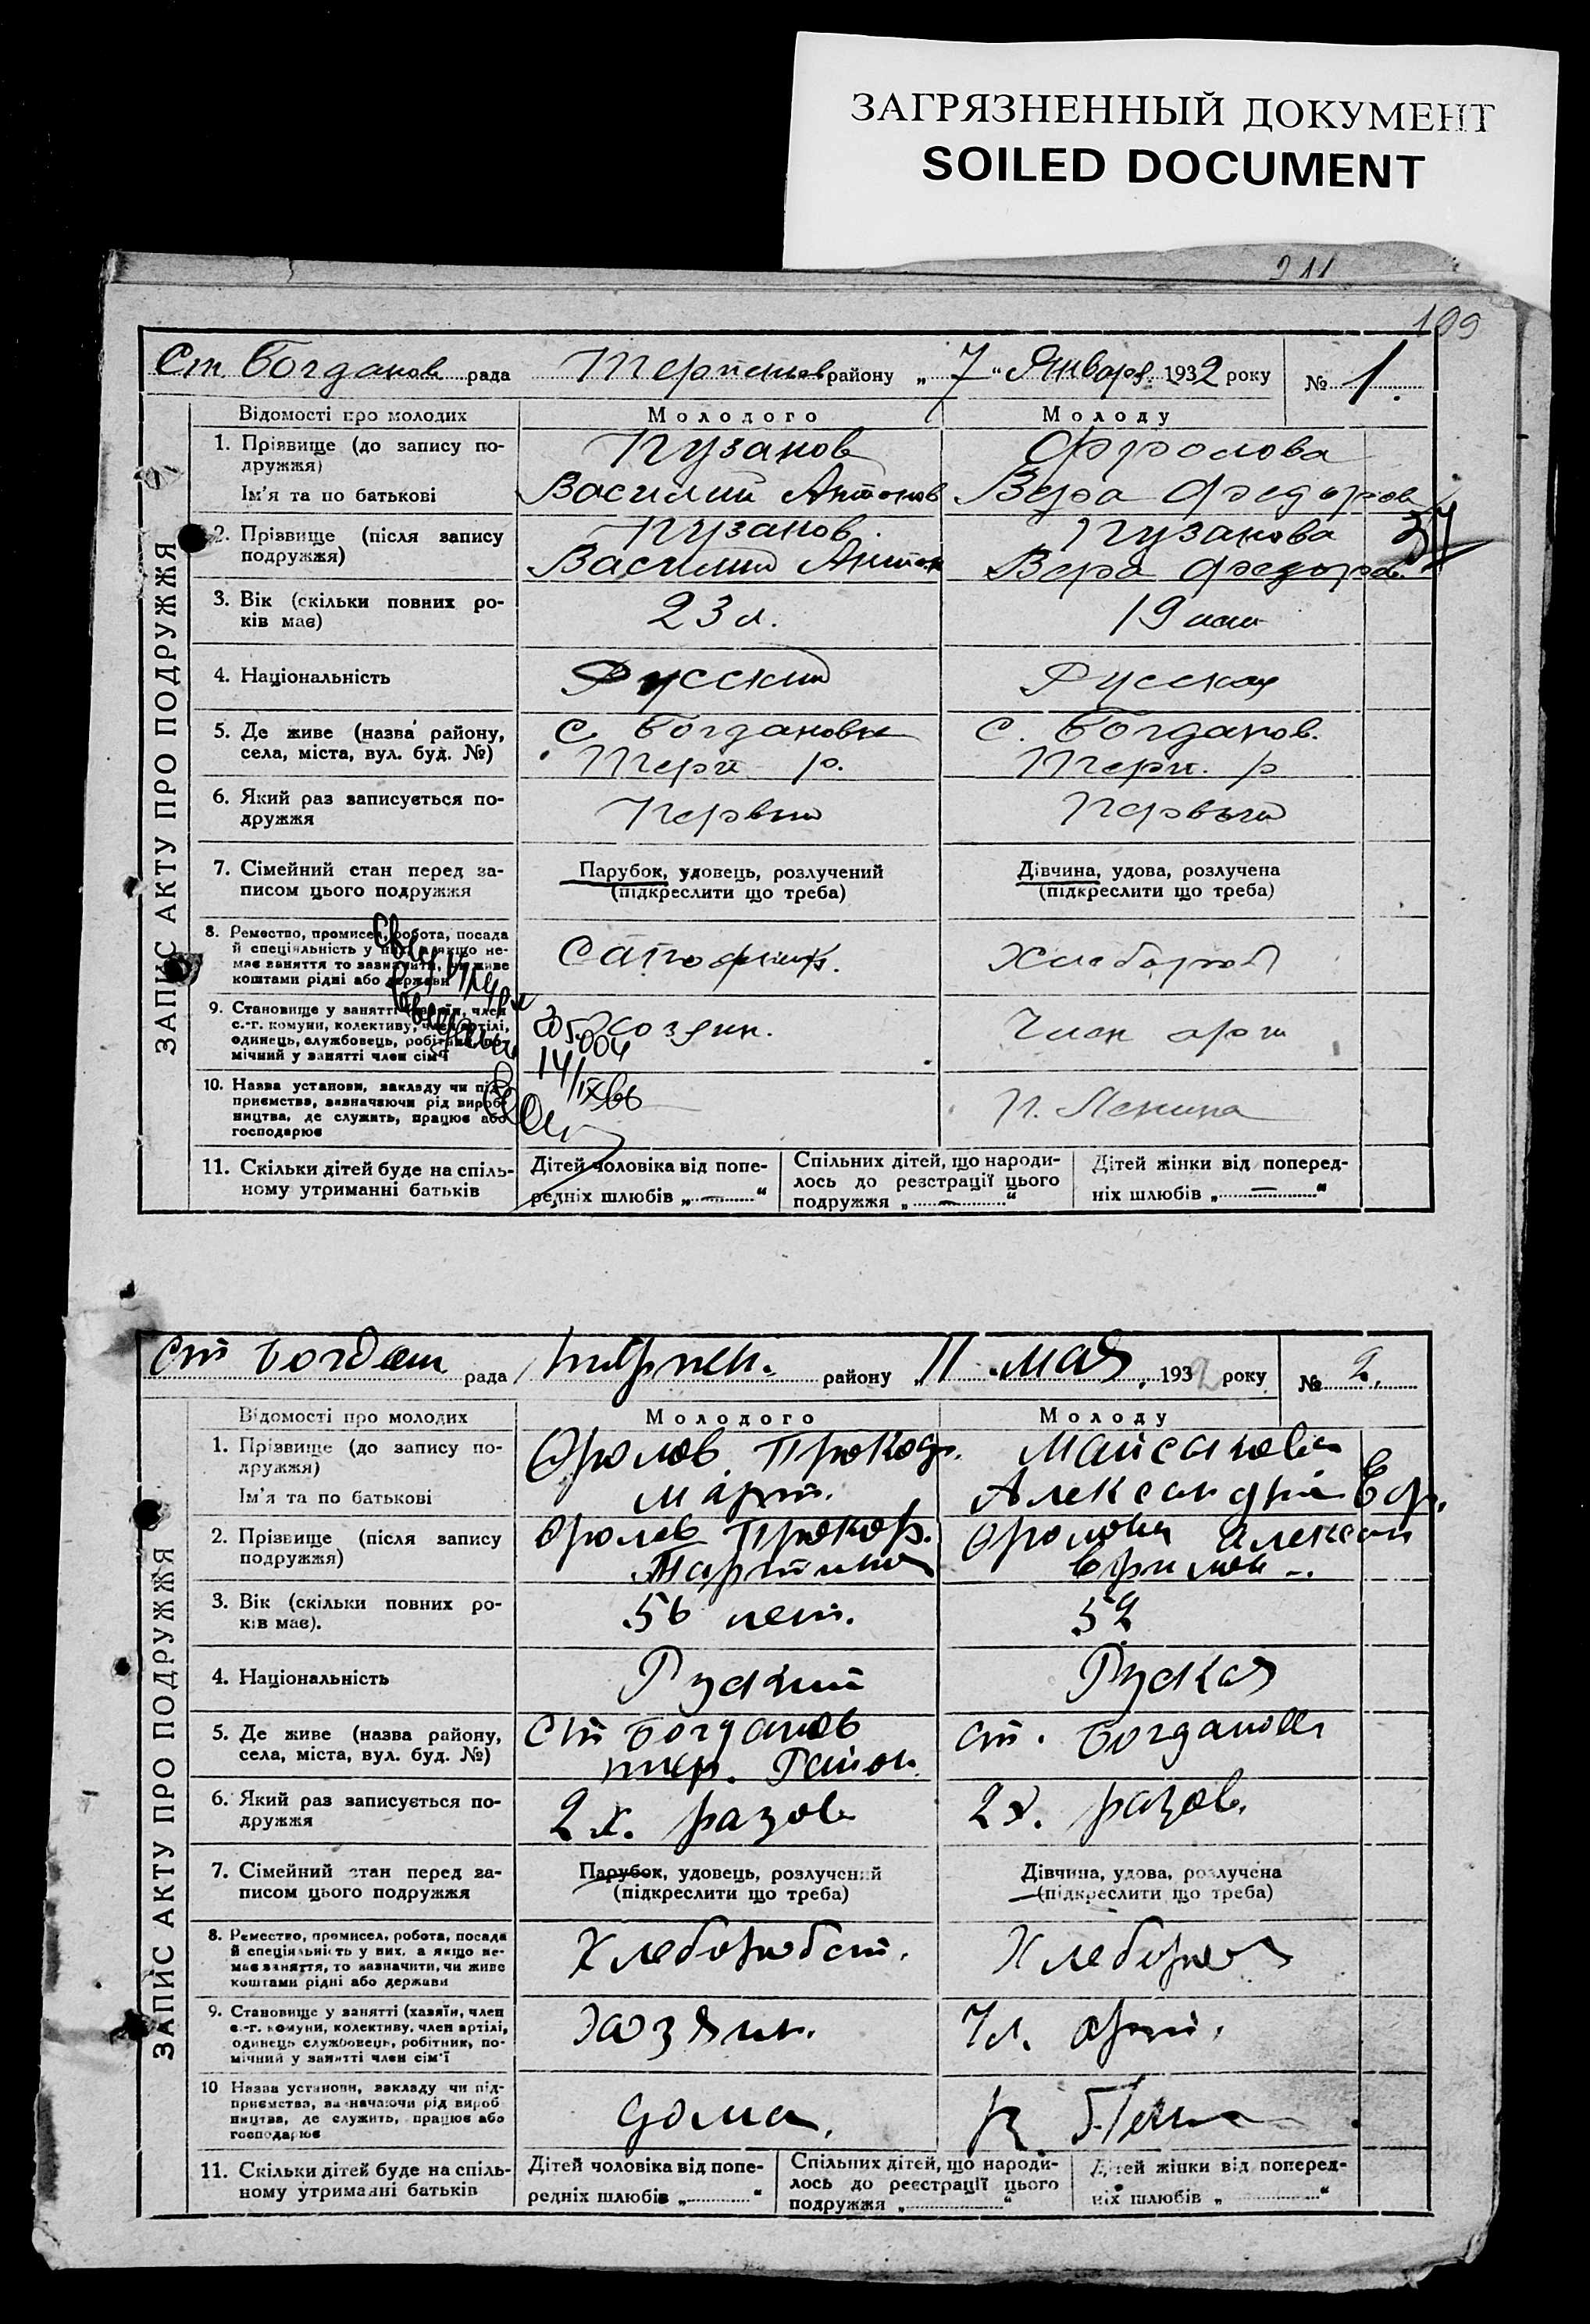 ЗАГРЯЗНЕННЫЙ ДОКУМЕНТ
SOILED DOCUMENT
211
199
Ст. Богданов рада Терпеньев району „7“ Января 1932 року № 1.
ЗАПИС АКТУ ПРО ПОДРУЖЖЯ
Відомості про молодих Молодого Молоду
1. Прізвище (до запису подружжя) Пузанов Фролова
Ім'я та по батькові Василий Антонов Вера Федоров
2. Прізвище (після запису подружжя) Пузанов Пузанова
Василий Антон Вера Федоров
37
3. Вік (скільки повних років має) 23 л. 19 лет
4. Національність Русский Русская
5. Де живе (назва району, села, міста, вул. буд. №) С. Богдановка С. Богданов.
Терп р. Терп. р
6. Який раз записується подружжя Первый Первый
7. Сімейний стан перед записом цього подружжя Парубок, удовець, розлучений Дівчина, удова, розлучена
(підкреслити що треба) (підкреслити що треба)
8. Ремество, промисел, робота, посада й спеціяльність у них, а якщо немає заняття то зазначити, чи живе коштами рідні або держави Хлебороб
9. Становище у занятті (хазяїн, член с.-г. комуни, колективу, член артілі, одинець, службовець, робітник, помічний у занятті член сім'ї Хозяин. Член арт
14/IX66
10. Назва установи, закладу чи підприємства, зазначаючи рід виробництва, де служить, працює або господарює Ленина
11. Скільки дітей буде на спільному утриманні батьків Дітей чоловіка від попередніх шлюбів „—“ Спільних дітей, що народилось до реєстрації цього подружжя „—“ Дітей жінки від попередніх шлюбів „—“
Ст Богдан рада району „11 мая 1932 року № 2.
ЗАПИС АКТУ ПРО ПОДРУЖЖЯ
Відомості про молодих Молодого Молоду
1. Прізвище (до запису подружжя) Фролов Прокоф.
Ім'я та по батькові Март. Александра Еф.
2. Прізвище (після запису подружжя) Фролов Прокоф. Фролова Алексан
Мартинов
3. Вік (скільки повних років має). 56 лет. 52
4. Національність Руский Руская
5. Де живе (назва району, села, міста, вул. буд. №) Ст Богданов ст. Богдановк
тер. Район.
6. Який раз записується подружжя 2х. разов 2х. разов.
7. Сімейний стан перед записом цього подружжя Парубок, удовець, розлучений Дівчина, удова, розлучена
(підкреслити що треба) (підкреслити що треба)
8. Ремество, промисел, робота, посада й спеціяльність у них, а якщо немає заняття, то зазначити, чи живе коштами рідні або держави Хлеборобст. Хлебороб
9. Становище у занятті (хазяїн, член с.-г. комуни, колективу, член артілі, одинець службовець, робітник, помічний у занятті член сім'ї Хозяин. Чл. арт.
10 Назва установи, закладу чи підприємства, зазначаючи рід виробництва, де служить, працює або господарює дома.
11. Скільки дітей буде на спільному утриманні батьків Дітей чоловіка від попередніх шлюбів „ “ Спільних дітей, що народилось до реєстрації цього подружжя „ “ Дітей жінки від попередніх шлюбів „ “